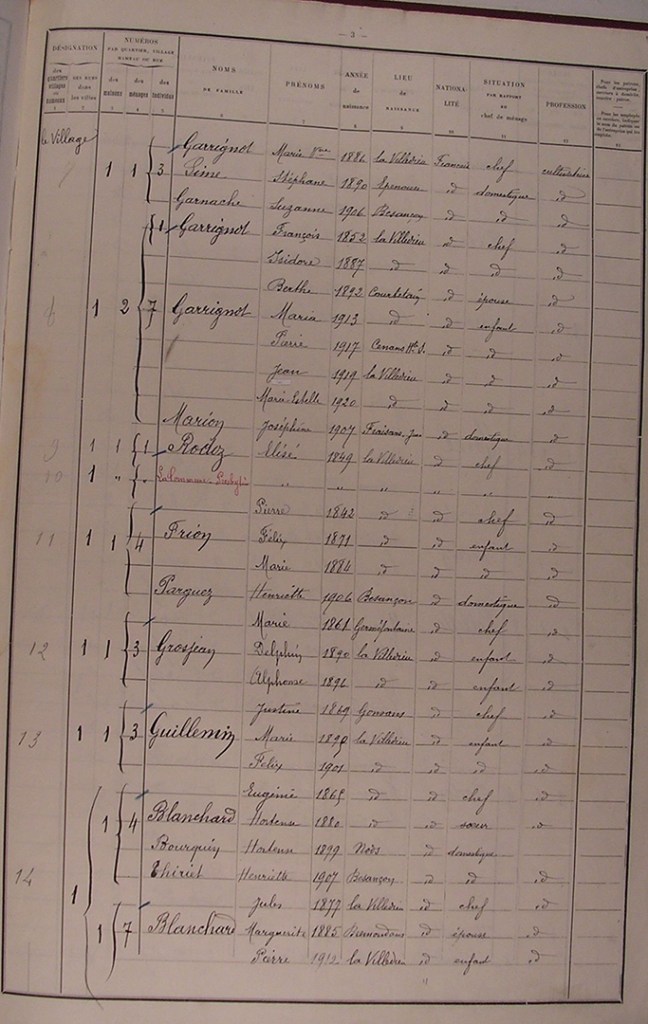 — 3 —
DÉSIGNATION
NUMÉROS
PAR QUARTIER, VILLAGE
HAMEAU OU RUE
NOMS
DE FAMILLE
PRÉNOMS
ANNÉE
de
naissance
LIEU
de
NAISSANCE
NATIONALITÉ
SITUATION
PAR RAPPORT
au
chef de ménage
PROFESSION
le Village
1 1 3 Garrignot Marie 1886 la Villedieu Française chef cultivatrice
Stéphane 1890 id domestique id
Garnache Suzanne 1906 Besançon id id id
1 Garrignot François 1852 la Villedieu id chef id
Isidore 1887 id id id id
Berthe 1892 id épouse id
8 1 2 7 Garrignot Maria 1913 id id enfant id
1917 Cenans Hte S. id id id
Jean 1919 la Villedieu id id id
Marie-Estelle 1920 id id id id
Marion Joséphine 1907 Fraisans Jura id domestique id
9 1 1 1 Rodez Elisé 1849 la Villedieu id chef id
10 1 " " La Commune " " " " "
Pierre 1842 id id chef id
11 1 1 4 Frion Félix 1871 id id enfant id
Marie 1884 id id id id
Parguez Henriette 1906 Besançon id domestique id
Marie 1861 Germéfontaine id chef id
12 1 1 3 Grosjean Delphin 1890 la Villedieu id enfant id
Alphonse 1896 id id enfant id
Justine 1869 Gonsans id chef id
13 1 1 3 Guillemin Marie la Villedieu id enfant id
Félix 1901 id id id id
Eugénie id id chef id
1 4 Blanchard Hortense 1880 id id soeur id
Bourquin Hortense 1899 Noës id domestique
14 Thiriet Henriette 1907 Besançon id id id
1 Jules 1877 la Villedieu id chef id
1 7 Blanchard Marguerite 1885 Bremondans id épouse id
Pierre 1912 la Villedieu id enfant id